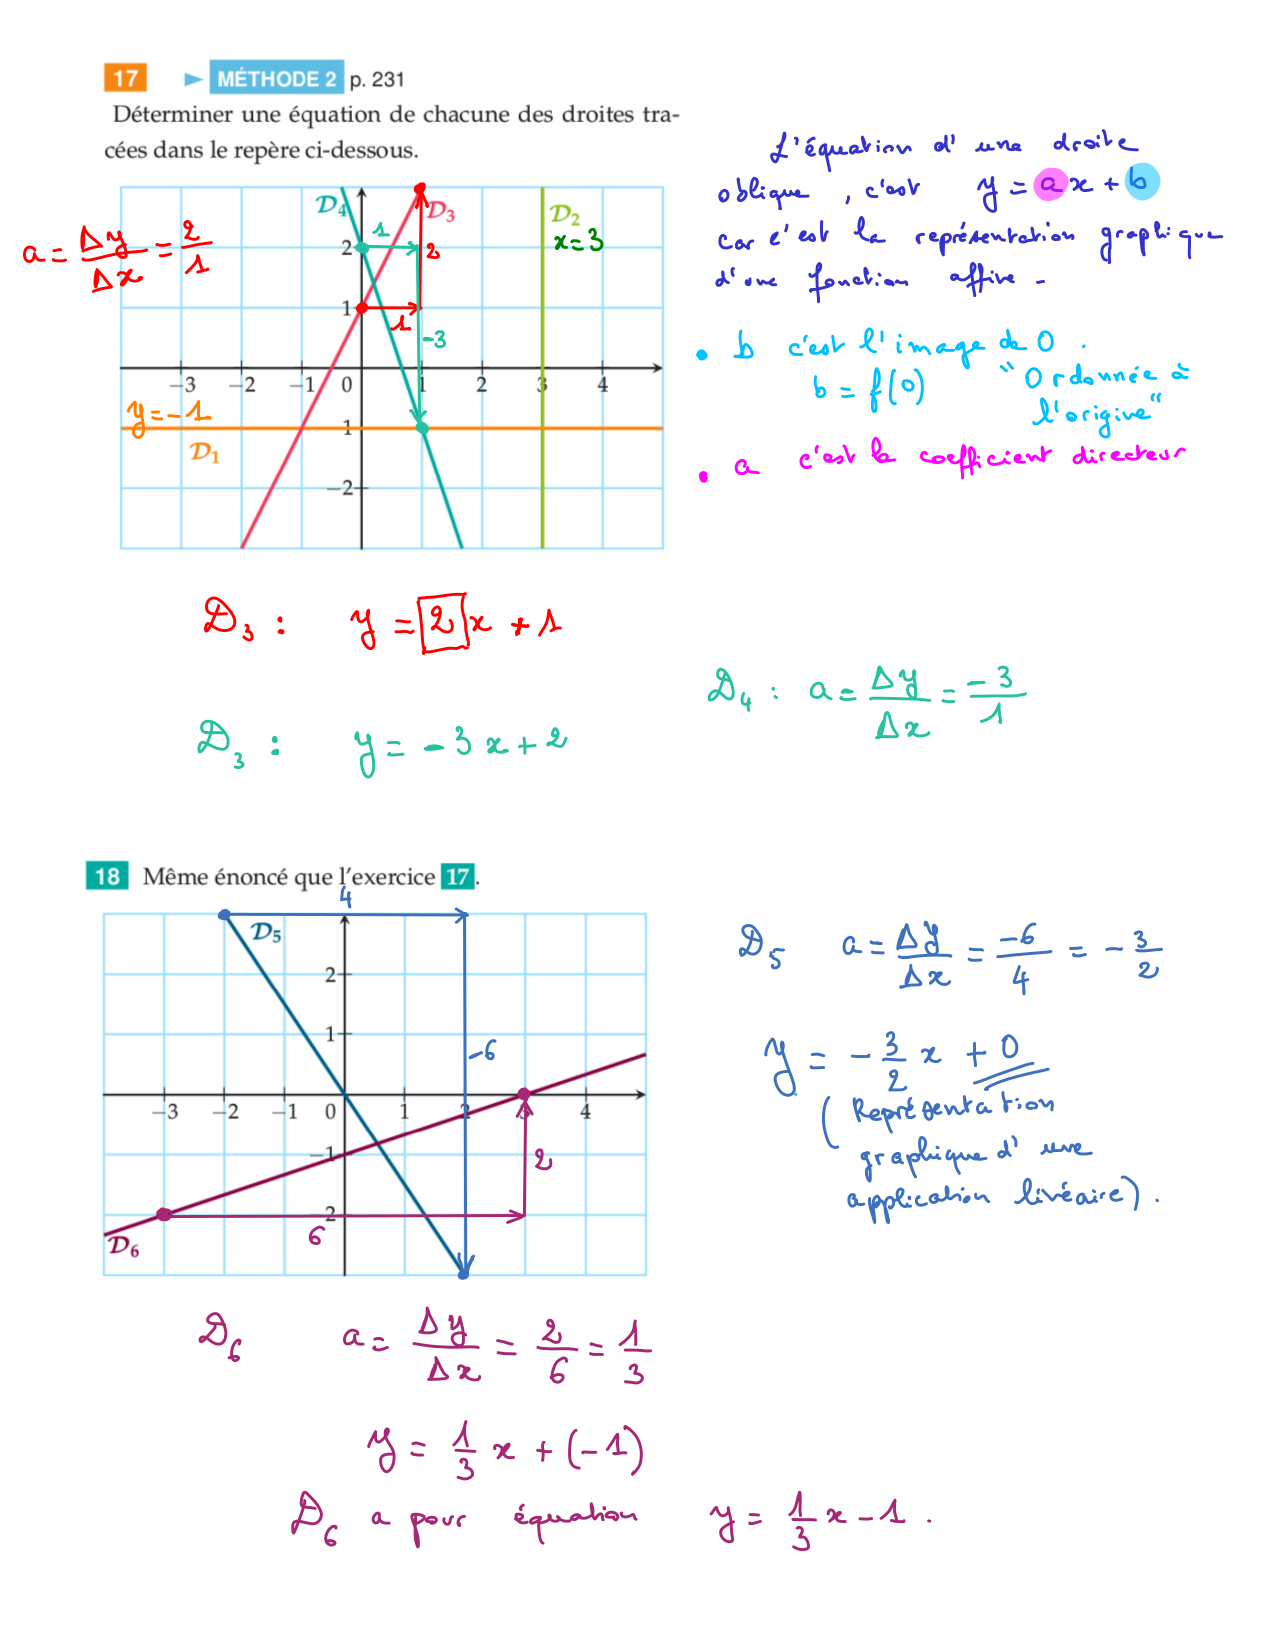 17 ► MÉTHODE 2 p. 231
Déterminer une équation de chacune des droites tra-
cées dans le repère ci-dessous.
L'équation d'une droite
oblique, c'est y = ax + b
car c'est la représentation graphique
d'une fonction affine.
• b c'est l'image de 0.
b = f(0) "Ordonnée à
l'origine"
• a c'est le coefficient directeur
a = Δy/Δx = 2/1
D4 D3 D2
x = 3
1
2
2
1
1
-3
−3 −2 −1 0 1 2 3 4
y = -1
−1
D1
−2
D3 : y = 2x + 1
D4 : a = Δy/Δx = -3/1
D3 : y = -3x + 2
18 Même énoncé que l'exercice 17.
4
D5
2
1
-6
−3 −2 −1 0 1 2 3 4
−1
2
−2
6
D6
D5 a = Δy/Δx = -6/4 = -3/2
y = -3/2 x + 0
(Représentation
graphique d'une
application linéaire).
D6 a = Δy/Δx = 2/6 = 1/3
y = 1/3 x + (-1)
D6 a pour équation y = 1/3 x - 1.